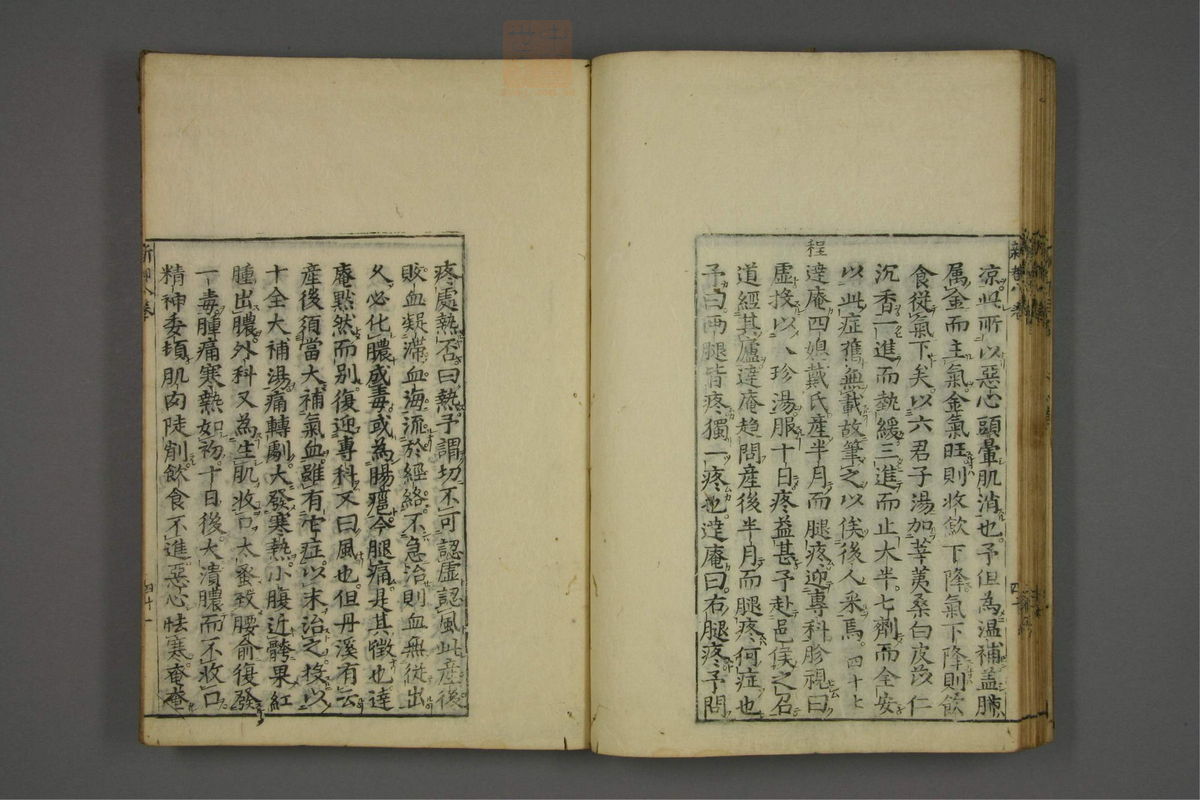 凉此所以惡心頭暈肌消也予但為温補盖肺
属金而主氣金氣旺則收歛下降氣下降則飲
食從氣下矣以六君子湯加莘荑桑白皮苡仁
沉香一進而熱緩三進而止大半七劑而全安
以此症舊無載故筆之以俟後人采焉 四十七
程達庵四媳戴氏產半月而腿疼迎專科胗視曰
虛投以八珍湯服十日疼益甚予赴邑侯之召
道經其廬達庵趋問產後半月而腿疼何症也
予曰两腿皆疼獨一疼也達庵曰右腿疼予問
疼處熱否曰熱予謂切不可認虛認風此產後
敗血凝滞血海流於經絡不急治則血無從出
久必化膿成毒或為腸癰今腿痛是其徵也達
庵默然而别復迎專科又曰風也但丹溪有云
產後須當大補氣血雖有它症以末治之投以
十全大補湯痛轉劇大發寒熱小腹近髈果紅
腫出膿外科又為生肌收口太蚤致腰俞復發
一毒腫痛寒熱如初十日後大潰膿而不收口
精神委頓肌肉陡削飲食不進惡心怯寒奄奄
四十一